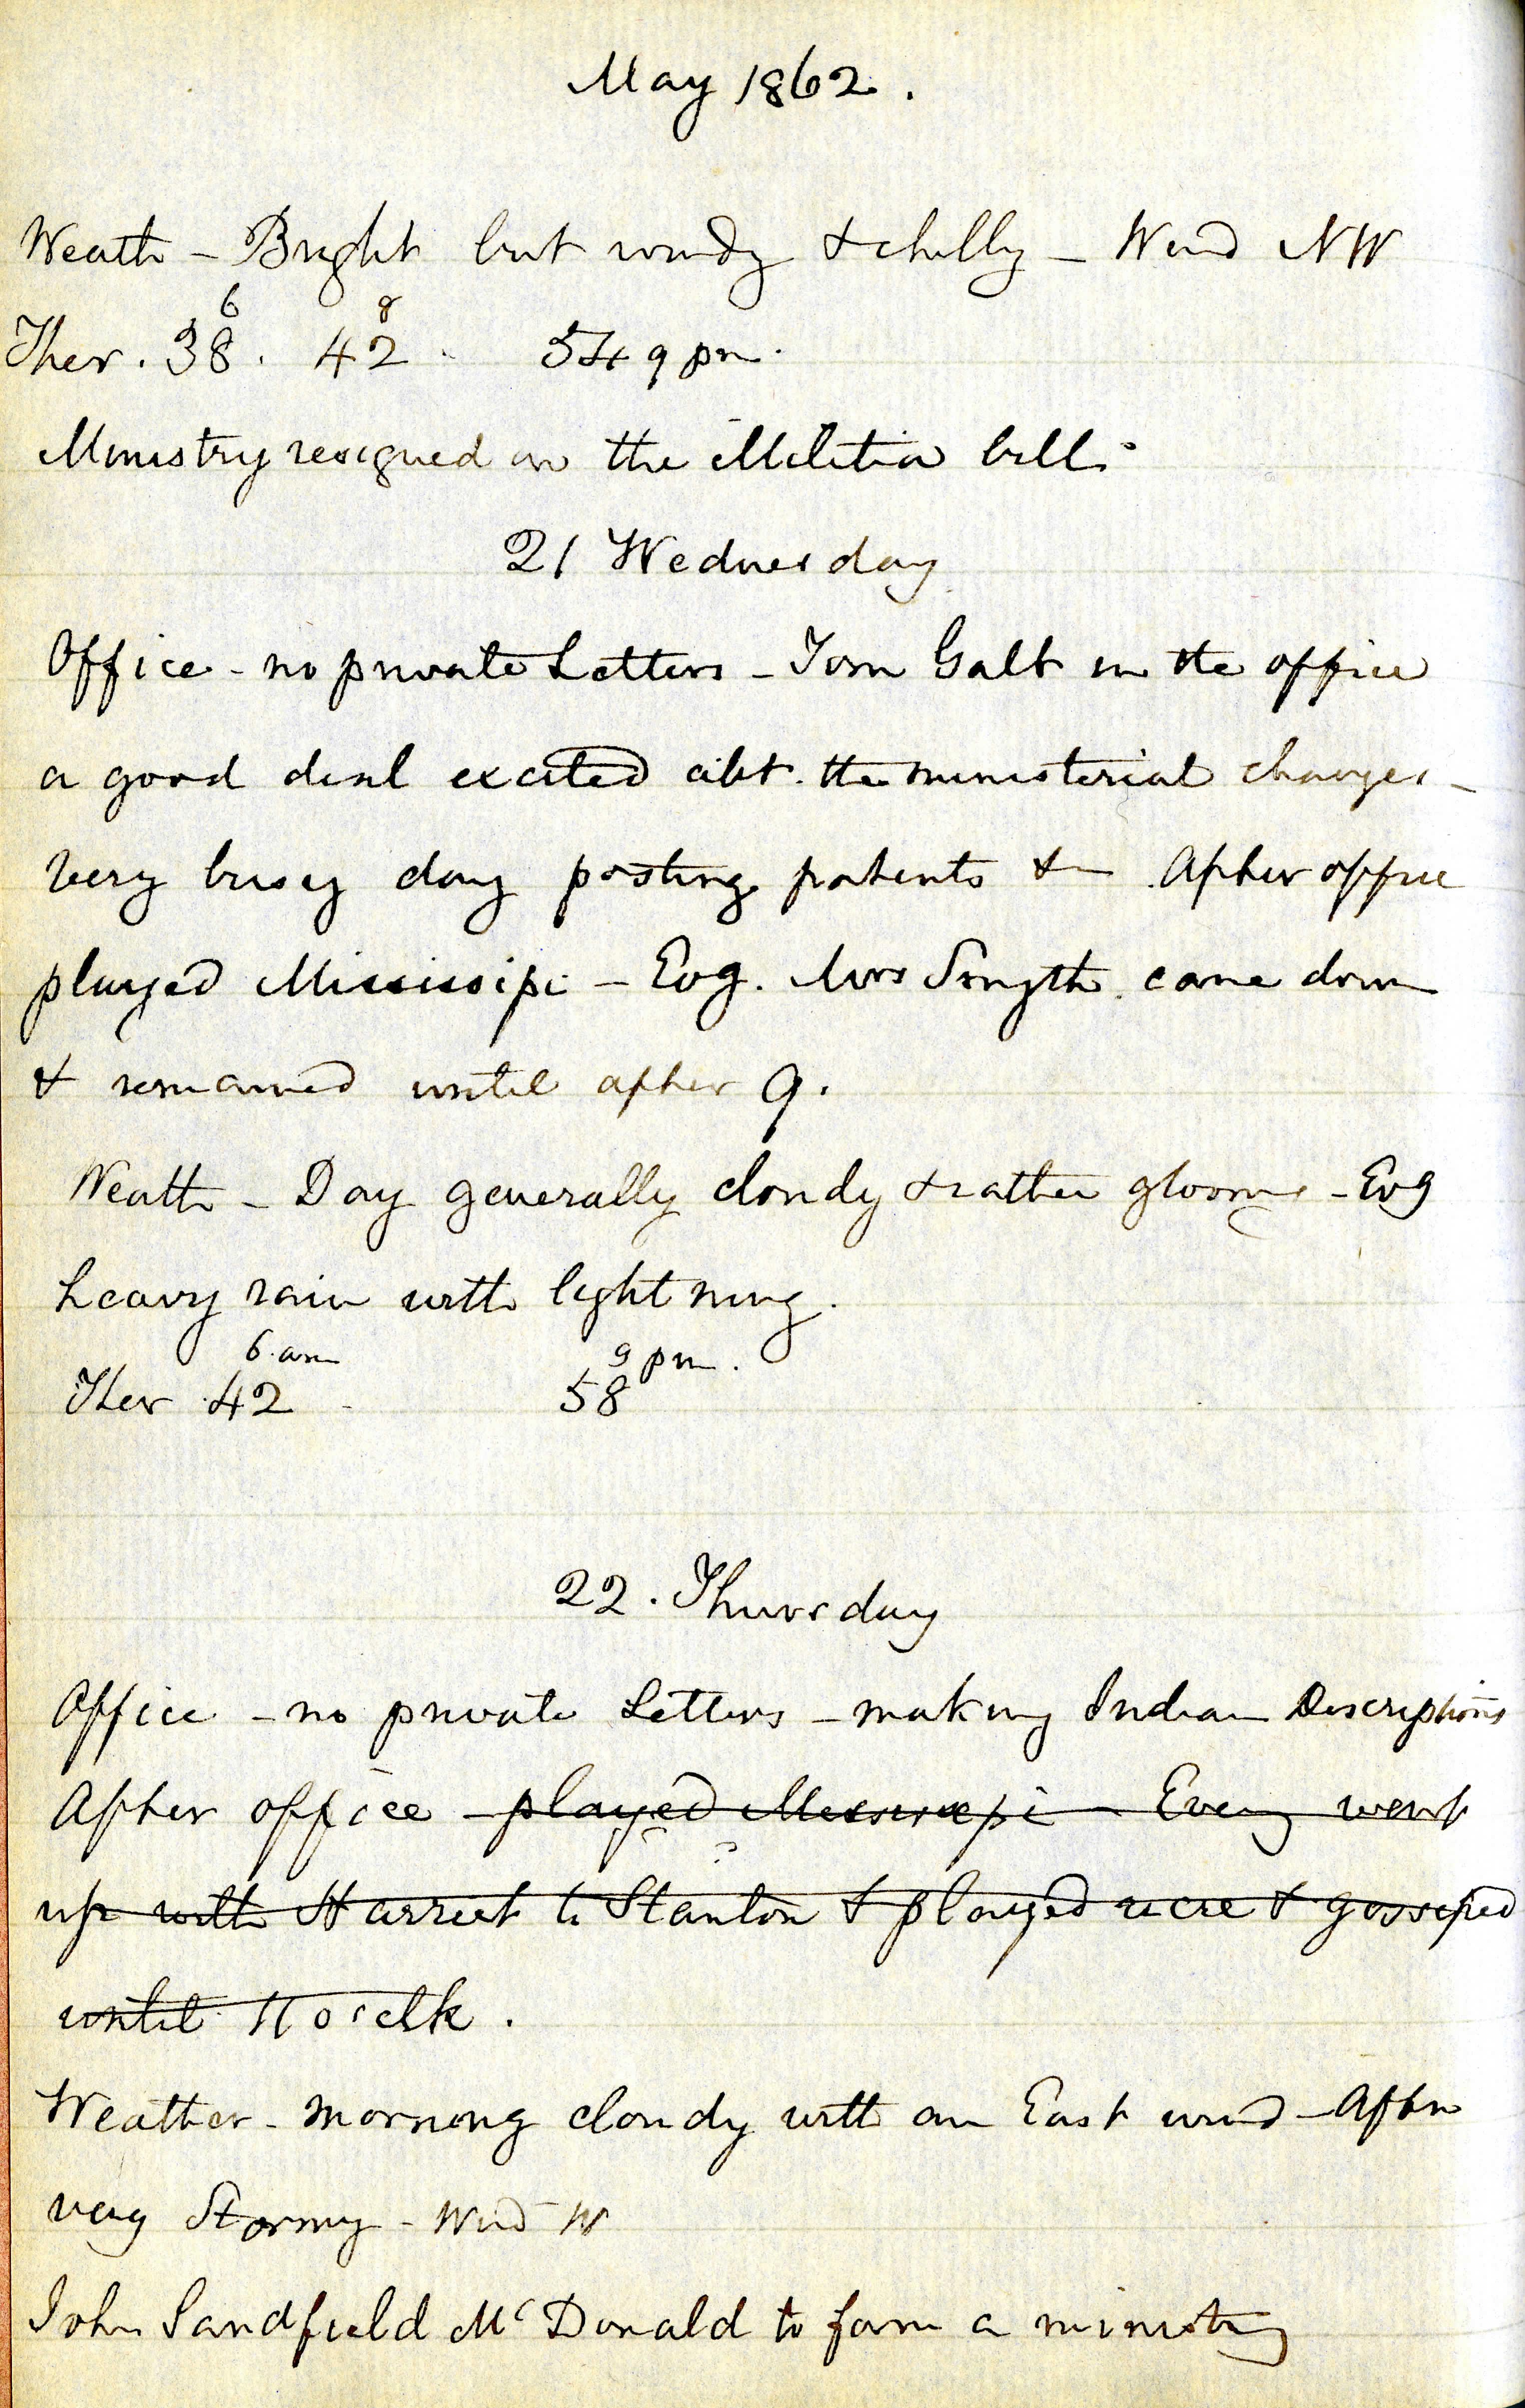 May 1862.
Weath - Bright but windy & chilly - Wind NW
6 8
Ther. 38. 42 54 9 pm.
Ministry resigned on the Militia bill.
21 Wednesday
Office - no private Letters - Tom Galt in the office
a good deal excited abt. the ministerial changes -
very busy day posting patents & After office
played Mississipi - Evg. Mrs Smyth came down
& remained until after 9.
Weath - Day generally cloudy & rather gloomy - Evg
heavy rain with lightning.
6 am 9 pm.
Ther 42 58
22. Thursday
Office - no private Letters - making Indian Descriptions
After office - played Mississipi - Eveng went
up with Harriet to Stanton & played & gossiped
until 11 o'clk.
Weather - morning cloudy with an East wind - Aftn
very Stormy - Wind W
John Sandfield McDonald to form a ministry